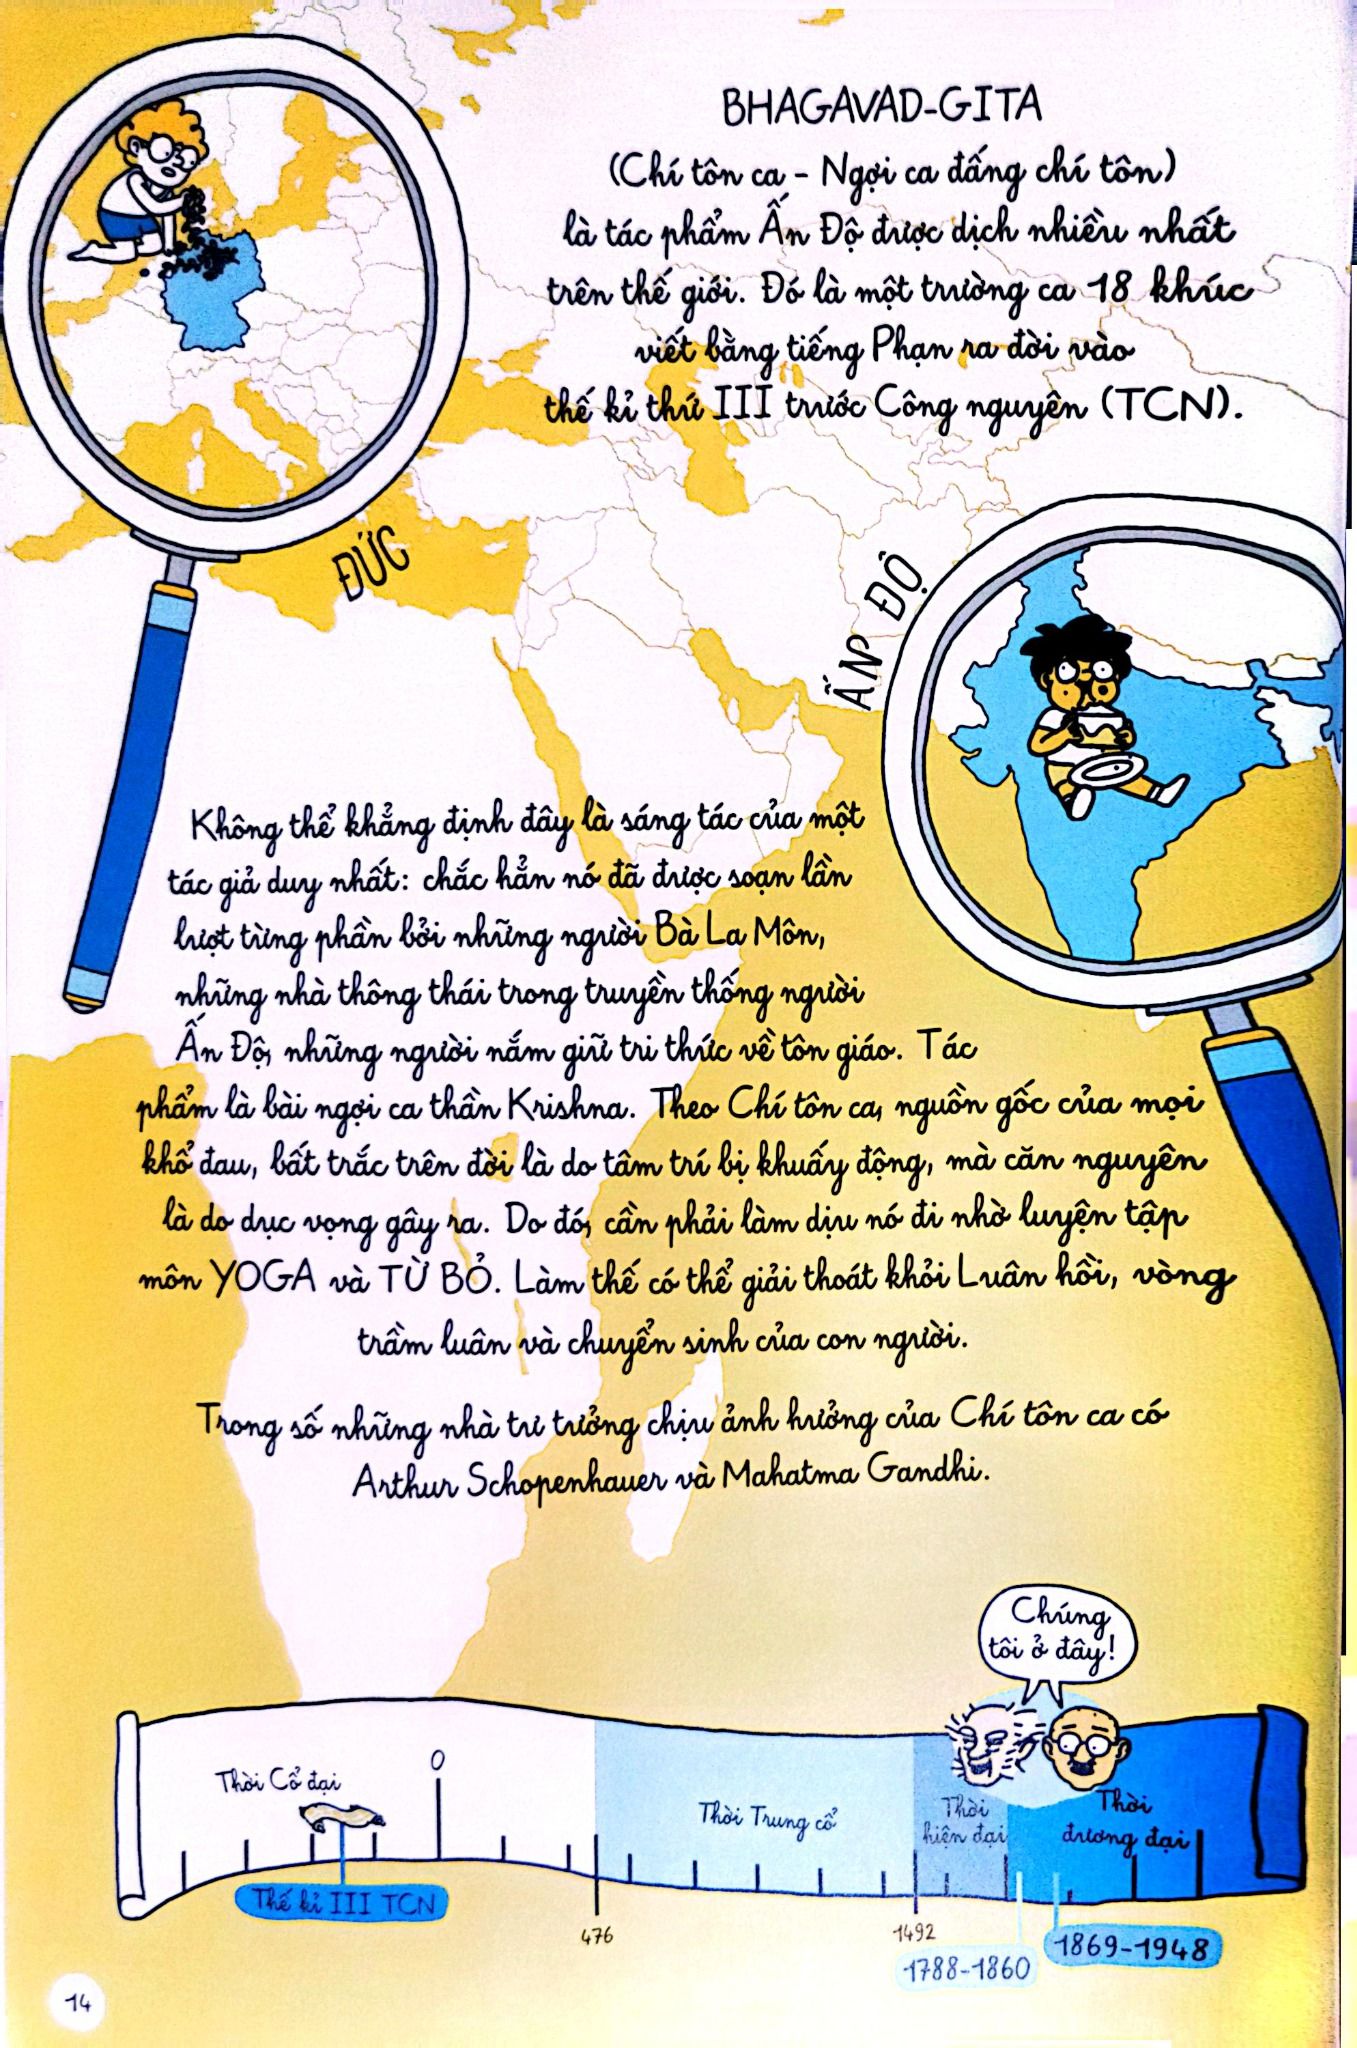 BHAGAVAD-GITA
(Chí tôn ca - Ngợi ca đấng chí tôn)
là tác phẩm Ấn Độ được dịch nhiều nhất
trên thế giới. Đó là một trường ca 18 khúc
viết bằng tiếng Phạn ra đời vào
thế kỉ thứ III trước Công nguyên (TCN).
ĐỨC
ẤN ĐỘ
Không thể khẳng định đây là sáng tác của một
tác giả duy nhất: chắc hẳn nó đã được soạn lần
lượt từng phần bởi những người Bà La Môn,
những nhà thông thái trong truyền thống người
Ấn Độ, những người nắm giữ tri thức về tôn giáo. Tác
phẩm là bài ngợi ca thần Krishna. Theo Chí tôn ca, nguồn gốc của mọi
khổ đau, bất trắc trên đời là do tâm trí bị khuấy động, mà căn nguyên
là do dục vọng gây ra. Do đó, cần phải làm dịu nó đi nhờ luyện tập
môn YOGA và TỪ BỎ. Làm thế có thể giải thoát khỏi Luân hồi, vòng
trầm luân và chuyển sinh của con người.
Trong số những nhà tư tưởng chịu ảnh hưởng của Chí tôn ca có
Arthur Schopenhauer và Mahatma Gandhi.
Chúng
tôi ở đây!
0
Thời Cổ đại
Thời Trung cổ
Thời
hiện đại
Thời
đương đại
Thế kỉ III TCN
476
1492
1788-1860
1869-1948
14